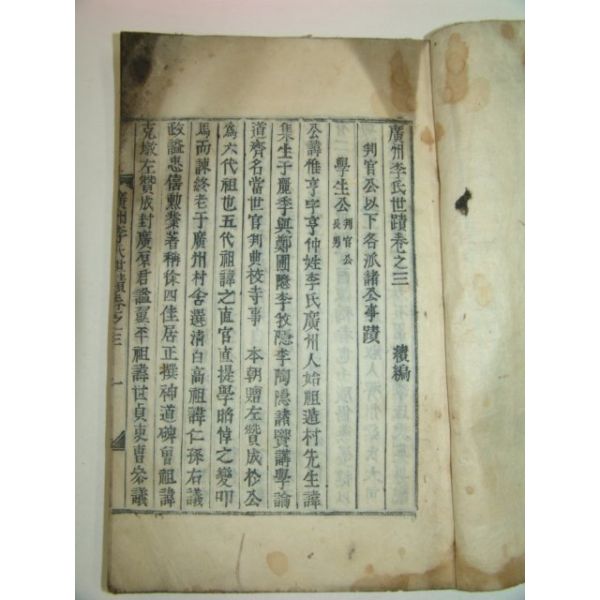 廣州李氏世蹟卷之三　　續編
判官公以下各派諸公事蹟
學生公 判官公長男
公諱惟亨字亨仲姓李氏廣州人始祖遁村先生諱
集生于麗季與鄭圃隱李牧隱李陶隱諸賢講學論
道齊名當世官判典校寺事　本朝贈左贊成於公
爲六代祖也五代祖諱之直官直提學昭悼之變叩
馬而諫終老于廣州村舍選清白高祖諱仁孫右議
政謚忠僖勳業著稱徐四佳居正撰神道碑曾祖諱
克墩左贊成封廣原君謚翼平祖諱世貞吏曹參議
廣州李氏世蹟卷之三　一